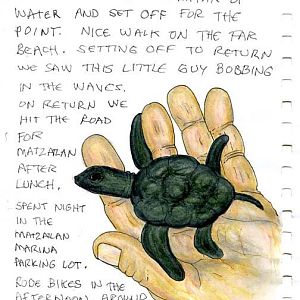 WATER AND SET OFF FOR THE
POINT. NICE WALK ON THE FAR
BEACH. SETTING OFF TO RETURN
WE SAW THIS LITTLE GUY BOBBING
IN THE WAVES.
ON RETURN WE
HIT THE ROAD
FOR
MATZATLAN
AFTER
LUNCH.
SPENT NIGHT
IN THE
MATZATLAN
MARINA
PARKING LOT.
RODE BIKES IN THE
AFTERNOON AROUND